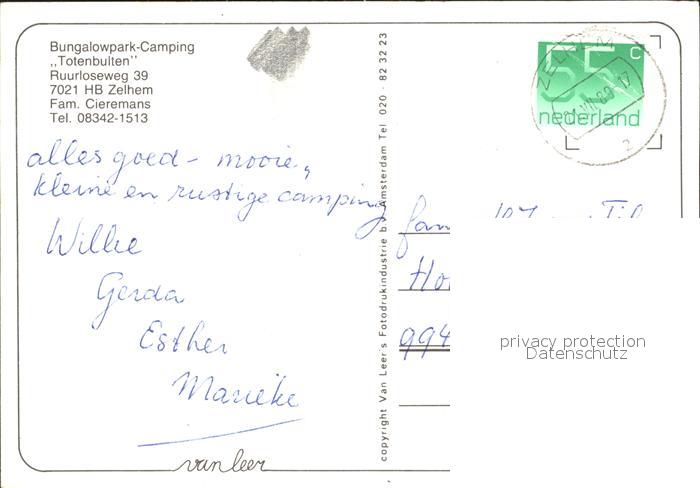 Bungalowpark-Camping
,,Totenbulten''
Ruurloseweg 39
7021 HB Zelhem
Fam. Cieremans
Tel. 08342-1513
alles goed - mooie,
kleine en rustige camping
Willie
Gerda
Esther
Marieke
van leer
copyright Van Leer's Fotodrukindustrie b.v. Amsterdam Tel 020 - 82 32 23
55 c
nederland
ZELHEM
fam
Ho
994
privacy protection
Datenschutz